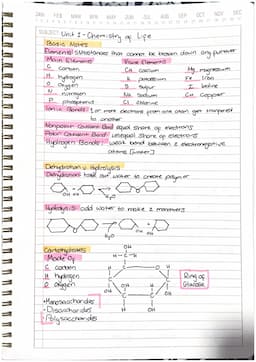 JAN FEB MAR APR MAY JUN JUL AUG SEP OCT NOV DEC
SUBJECT Unit 1 - Chemistry of Life
Basic Notes
Elements: Substances that cannot be broken down any further
Main Elements Trace Elements
C carbon Ca calcium Mg magnesium
H hydrogen K potassium Fe Iron
O oxygen S sulfur I Iodine
N nitrogen Na Sodium Cu Copper
P phosphorus Cl chlorine
Ionic Bonds: 1 or more electrons from one atom get transferred
to another
Nonpolar Covalent Bond equal share of electrons
Polar Covalent Bond unequal share of electrons
Hydrogen Bonds: weak bond between 2 electronegative
atoms
Dehydration v Hydrolysis
Dehydration: take out water to create polymer
H₂O
Hydrolysis: add water to make 2 monomers
H₂O
Carbohydrates
Made of
C carbon
H hydrogen
O oxygen
OH
H-C-H
O
H
OH
Ring of
Glucose
• Monosaccharides
• Disaccharides
• Polysaccharides